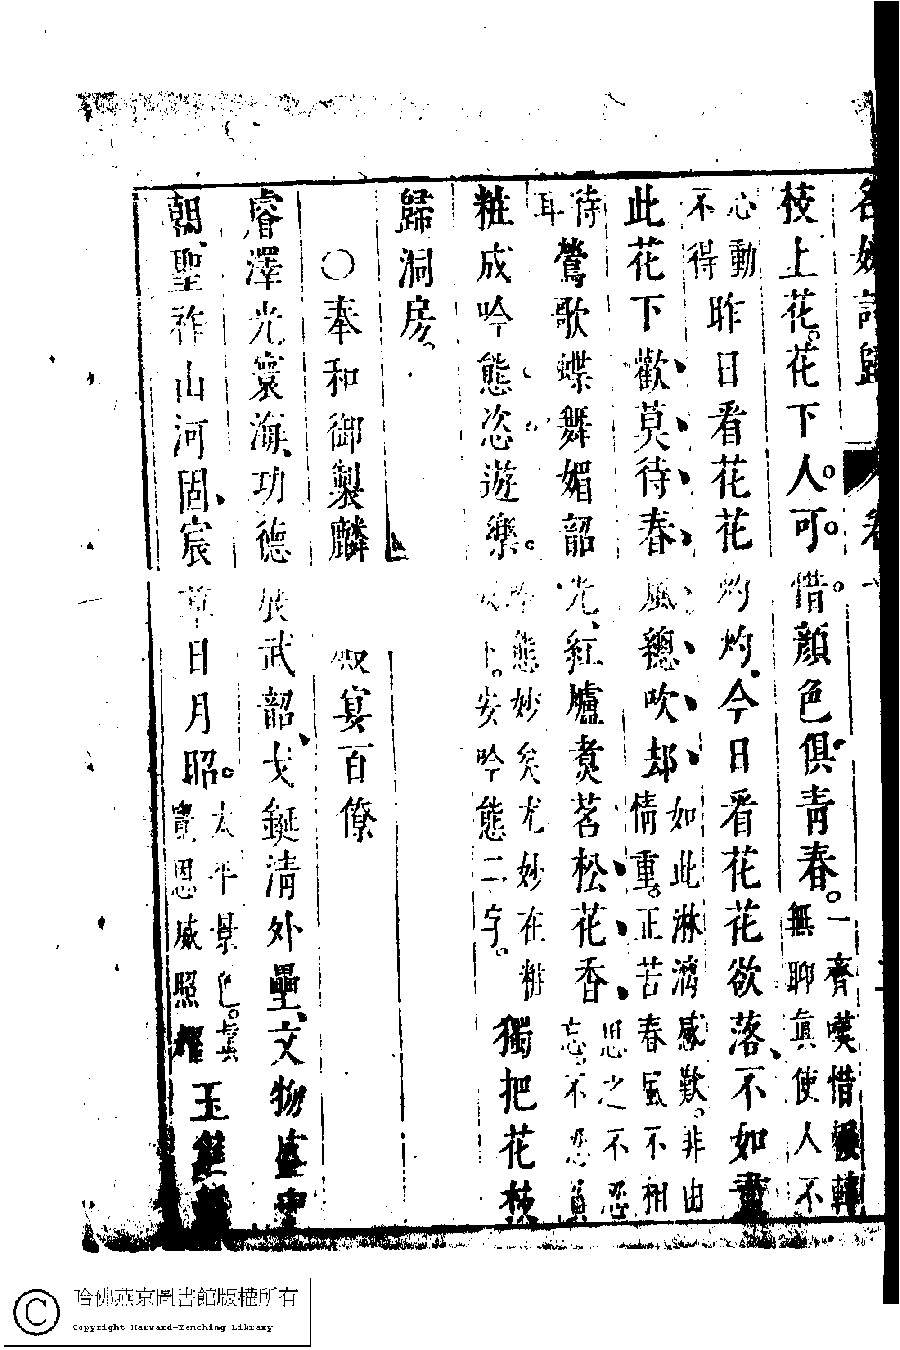 名媛詩歸　卷十
枝上花。花下人。可惜顏色俱青春。一齊嘆惜無聊真使人不
心動不得昨日看花花灼灼、今日看花花欲落、不如盡
此花下歡莫待春風總吹却如此淋漓感歎。非由情重。正苦春風不相
待耳鶯歌蝶舞媚韶光、紅爐煑茗松花香思之不忍忘。不忍負
粧成吟態恣遊樂。吟態妙矣尤妙在粧成下。安吟態二字。獨把花枝
歸洞房。
○奉和御製麟　殿宴百僚
睿澤光寰海、功德展武韶、戈鋋清外壘、文物盛
朝、聖祚山河固、宸章日月昭。太平景色。真實恩威照耀玉
哈佛燕京圖書館版權所有
Copyright Harvard-Yenching Library